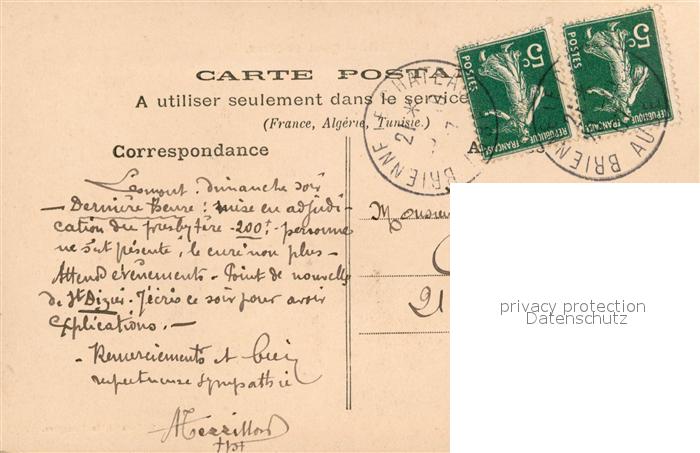 CARTE POSTA
A utiliser seulement dans le service
(France, Algérie, Tunisie.)
Correspondance
A
Lesmont. dimanche soir
— Dernière heure: mise en adjudi-
cation du presbytère - 200f - personne
ne s'est présenté, le curé non plus -
Attend évènements - Point de nouvelle
de St Dizier. J'écris ce soir pour avoir
explications. —
- Remerciements et bien
respectueuse sympathie
Monsieur
21
5c POSTES RÉPUBLIQUE FRANÇAISE
5c POSTES RÉPUBLIQUE FRANÇAISE
BRIENNE LE CHATEAU
21 *
BRIENNE AUBE
privacy protection
Datenschutz